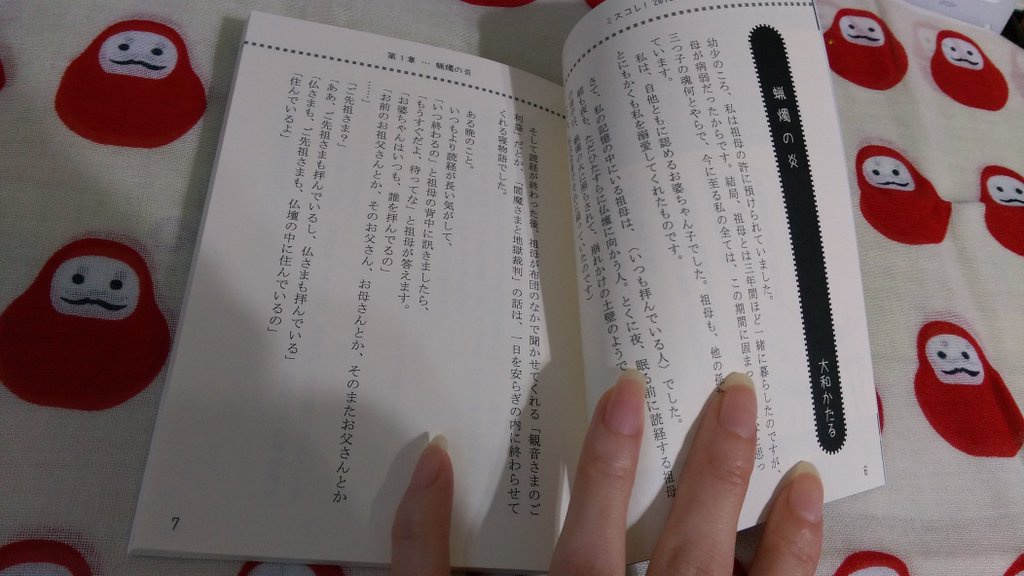 ミスコレ!
蝋燭の炎
大和かたる
幼少のころ、私は祖母の許に預けられていました。
母が病弱だったからです。結局、祖母とは三年間ほど一緒に暮らしたのですが、
三つ子の魂何とやらで、今に至る私の全ては、この期間に固まっ
ています。
私は、自他ともに認めるお婆ちゃん子でした。祖母も、他の
とにもかくも私を溺愛してくれたものです。
さて、私の記憶の中にいる祖母は、〈いつも拝んでいる人〉でした。
朝も夕も、ただひたすらに仏壇に向かう人。とくに夜、眠る前に読経する祖母
崩れかけの土壁のようで
6
第1章 … 蝋燭の炎
そして読経が終わった後、祖母が布団のなかで聞かせてくれる「観音さまのご
利益」だとか、「閻魔さまと地獄裁判」の話は、一日を安らぎの内に終わらせて
くれる寝物語でした。
ある晩のこと。
いつもより読経が長い気がして、
「いつ終わるの」と祖母の背中に訊きましたら、
「もうすぐだよ、待ってな」と祖母が答えます。
「お婆ちゃんはいつも、誰を拝んでるの」
「お前のお祖父さんとか、そのお父さん、お母さんとか、そのまたお父さんとか
……」
「ご先祖さま?」
「ああ、ご先祖さまも拝んでいるし、仏さまも拝んでいる」
「仏さまも、ご先祖さまも、仏壇の中に住んでいるの」
「住んでいるよ」
7